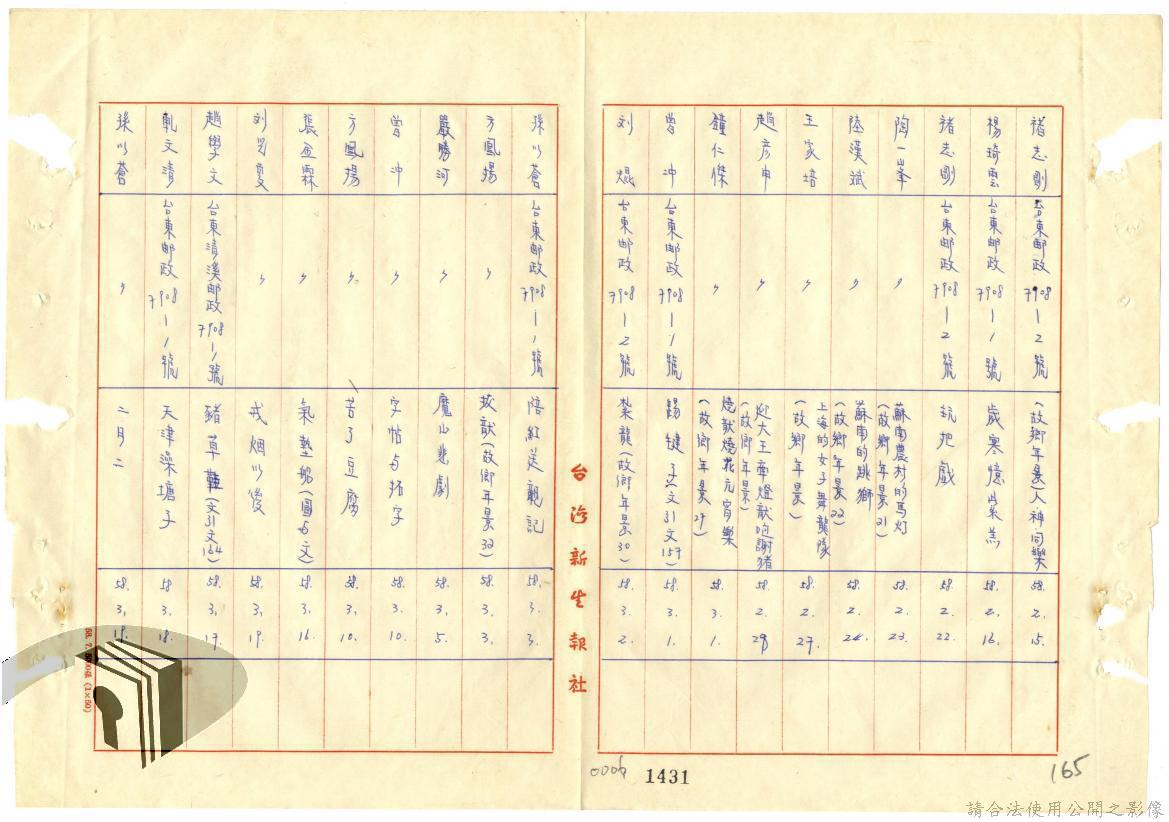 褚志剛 台東郵政7908－2號 （故鄉年景）人神同樂 58.2.15.
楊琦雲 台東郵政7908－1號 歲寒憶紫羔 58.2.16.
褚志剛 台東郵政7908－2號 玩把戲 58.2.22.
陶一峯 〃 蘇南農村的馬灯（故鄉年景21） 58.2.23.
陸漢斌 〃 蘇南的跳獅（故鄉年景22） 58.2.24.
王家培 〃 上海的女子舞龍隊（故鄉年景） 58.2.27.
趙彥申 〃 迎大王 58.2.28
鐘仁傑 〃 （故鄉年景29） 58.3.1.
曾冲 台東郵政7908－1號 踢毽子（文引文157） 58.3.1.
刘焜 台東郵政7908－2號 紮龍（故鄉年景30） 58.3.2.
台灣新生報社
孫以蒼 台東郵政7908－1號 陪紅送親記 58.3.3.
方鳳揚 〃 （故鄉年景32） 58.3.3.
嚴勝河 〃 魔山悲劇 58.3.5.
曾冲 〃 字帖与拓字 58.3.10.
方鳳揚 〃 苦了豆腐 58.3.10.
張金霖 〃 氣墊船（圖与文） 58.3.16.
刘 〃 戒烟以後 58.3.19.
趙學文 台東清溪郵政7908－1號 豬草鞋（文引文164） 58.3.17.
軋文清 台東郵政7908－1號 天津澡塘子 58.3.18.
孫以蒼 〃 二月二 58.3.19.
0006
1431
165
請合法使用公開之影像